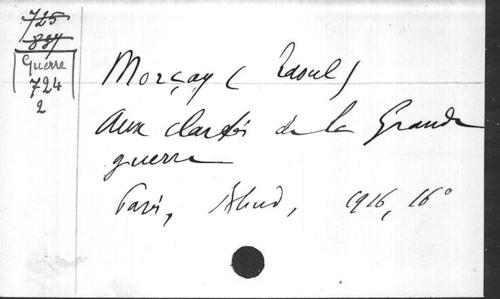 725
884
Guerre
724
2
Morçay (Raoul)
Aux clartés de la Grande
guerre
Paris, 1916, 16°